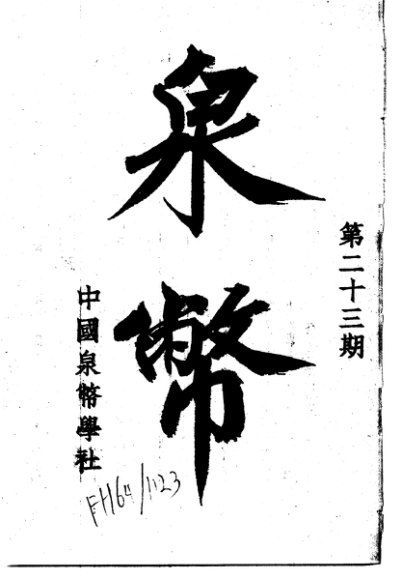 第二十三期
泉幣
中國泉幣學社
FH64/1123